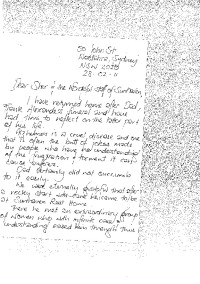 50 John St
Woollahra, Sydney
NSW 2025
28-02-11
Dear Sher & the Wonderful staff of Sunhaven,
I have returned home after Dad,
Frank Alexander's funeral and have
had time to reflect on the later part
of his life.
Alzheimers is a cruel disease and one
that is often the butt of jokes made
by people who have no understanding
of the frustration & torment it can
cause sufferers.
Dad certainly did not succumb
to it easily.
We were eternally grateful that after
a rocky start with he came to be
at Rest Home
There he met an extraordinary group
of women who with infinite care &
understanding eased him through this